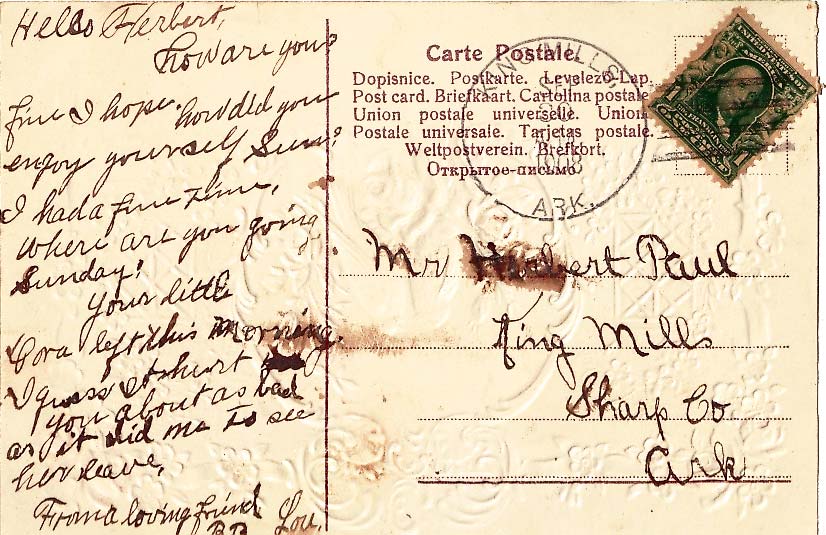 Hello Herbert,
how are you?
fine I hope. how did you
enjoy yourself Sun?
I had a fine time,
where are you going
Sunday?
Your little
Cora left this morning.
I guess it hurt
you about as bad
as it did me to see
her leave,
From a loving friend
Lou.
Carte Postale.
Dopisnice. Postkarte. Levelező-Lap.
Post card. Briefkaart. Cartolina postale
Union postale universelle. Union
Postale universale. Tarjetas postale.
Weltpostverein. Brefkort.
Открытое-письмо
KING MILLS,
1908
ARK.
1
Mr Herbert Paul
King Mills
Sharp Co
Ark